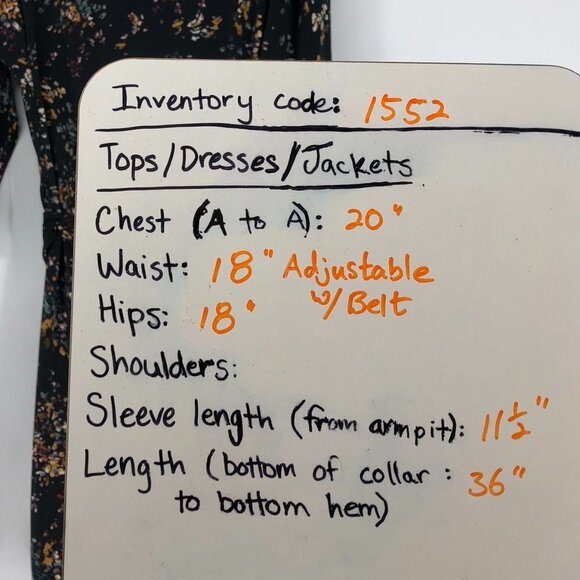 Inventory code: 1552
Tops/Dresses/Jackets
Chest (A to A): 20"
Waist: 18" Adjustable
Hips: 18" w/ Belt
Shoulders:
Sleeve length (from armpit): 11 1/2"
Length (bottom of collar : 36"
to bottom hem)